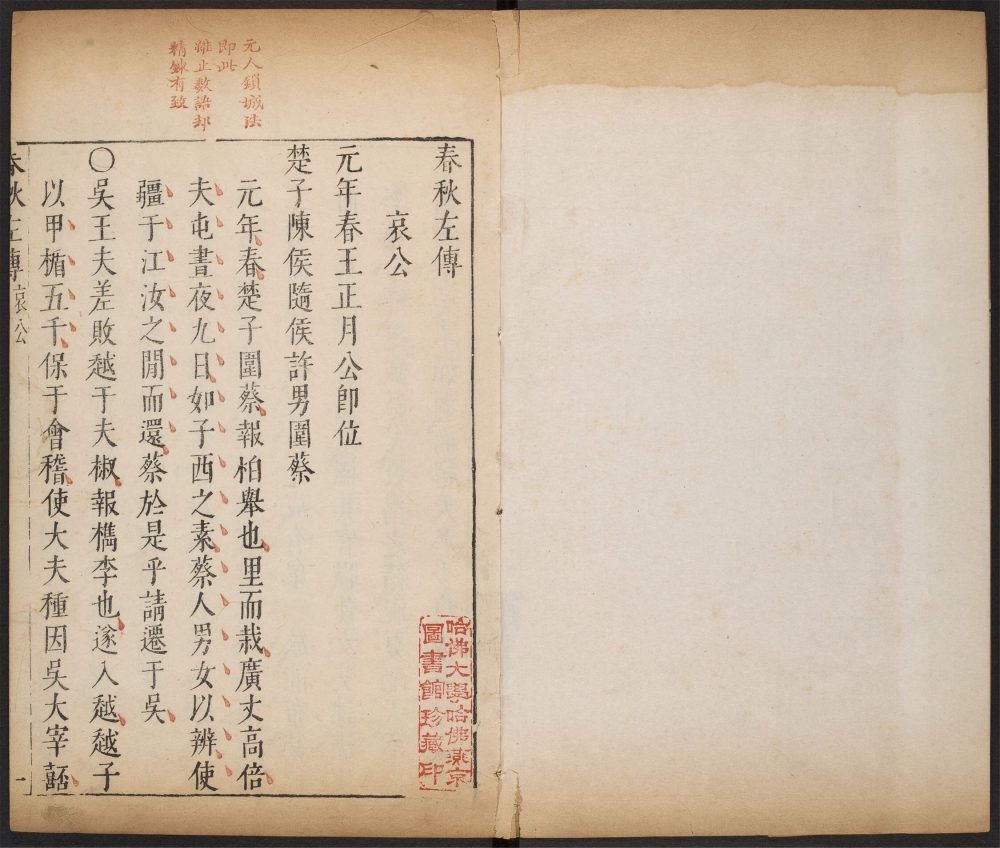 春秋左傳
哀公
元年春王正月公卽位
楚子陳侯隨侯許男圍蔡
元年春楚子圍蔡報柏舉也里而栽廣丈高倍
夫屯晝夜九日如子西之素蔡人男女以辨使
疆于江汝之間而還蔡於是乎請遷于吳
〇吳王夫差敗越于夫椒報檇李也遂入越越子
以甲楯五千保于會稽使大夫種因吳大宰嚭
春秋左傳哀公
一
元人鎖城法
卽此
止數語却
精鍊有致
哈佛大學哈佛燕京
圖書館珍藏印